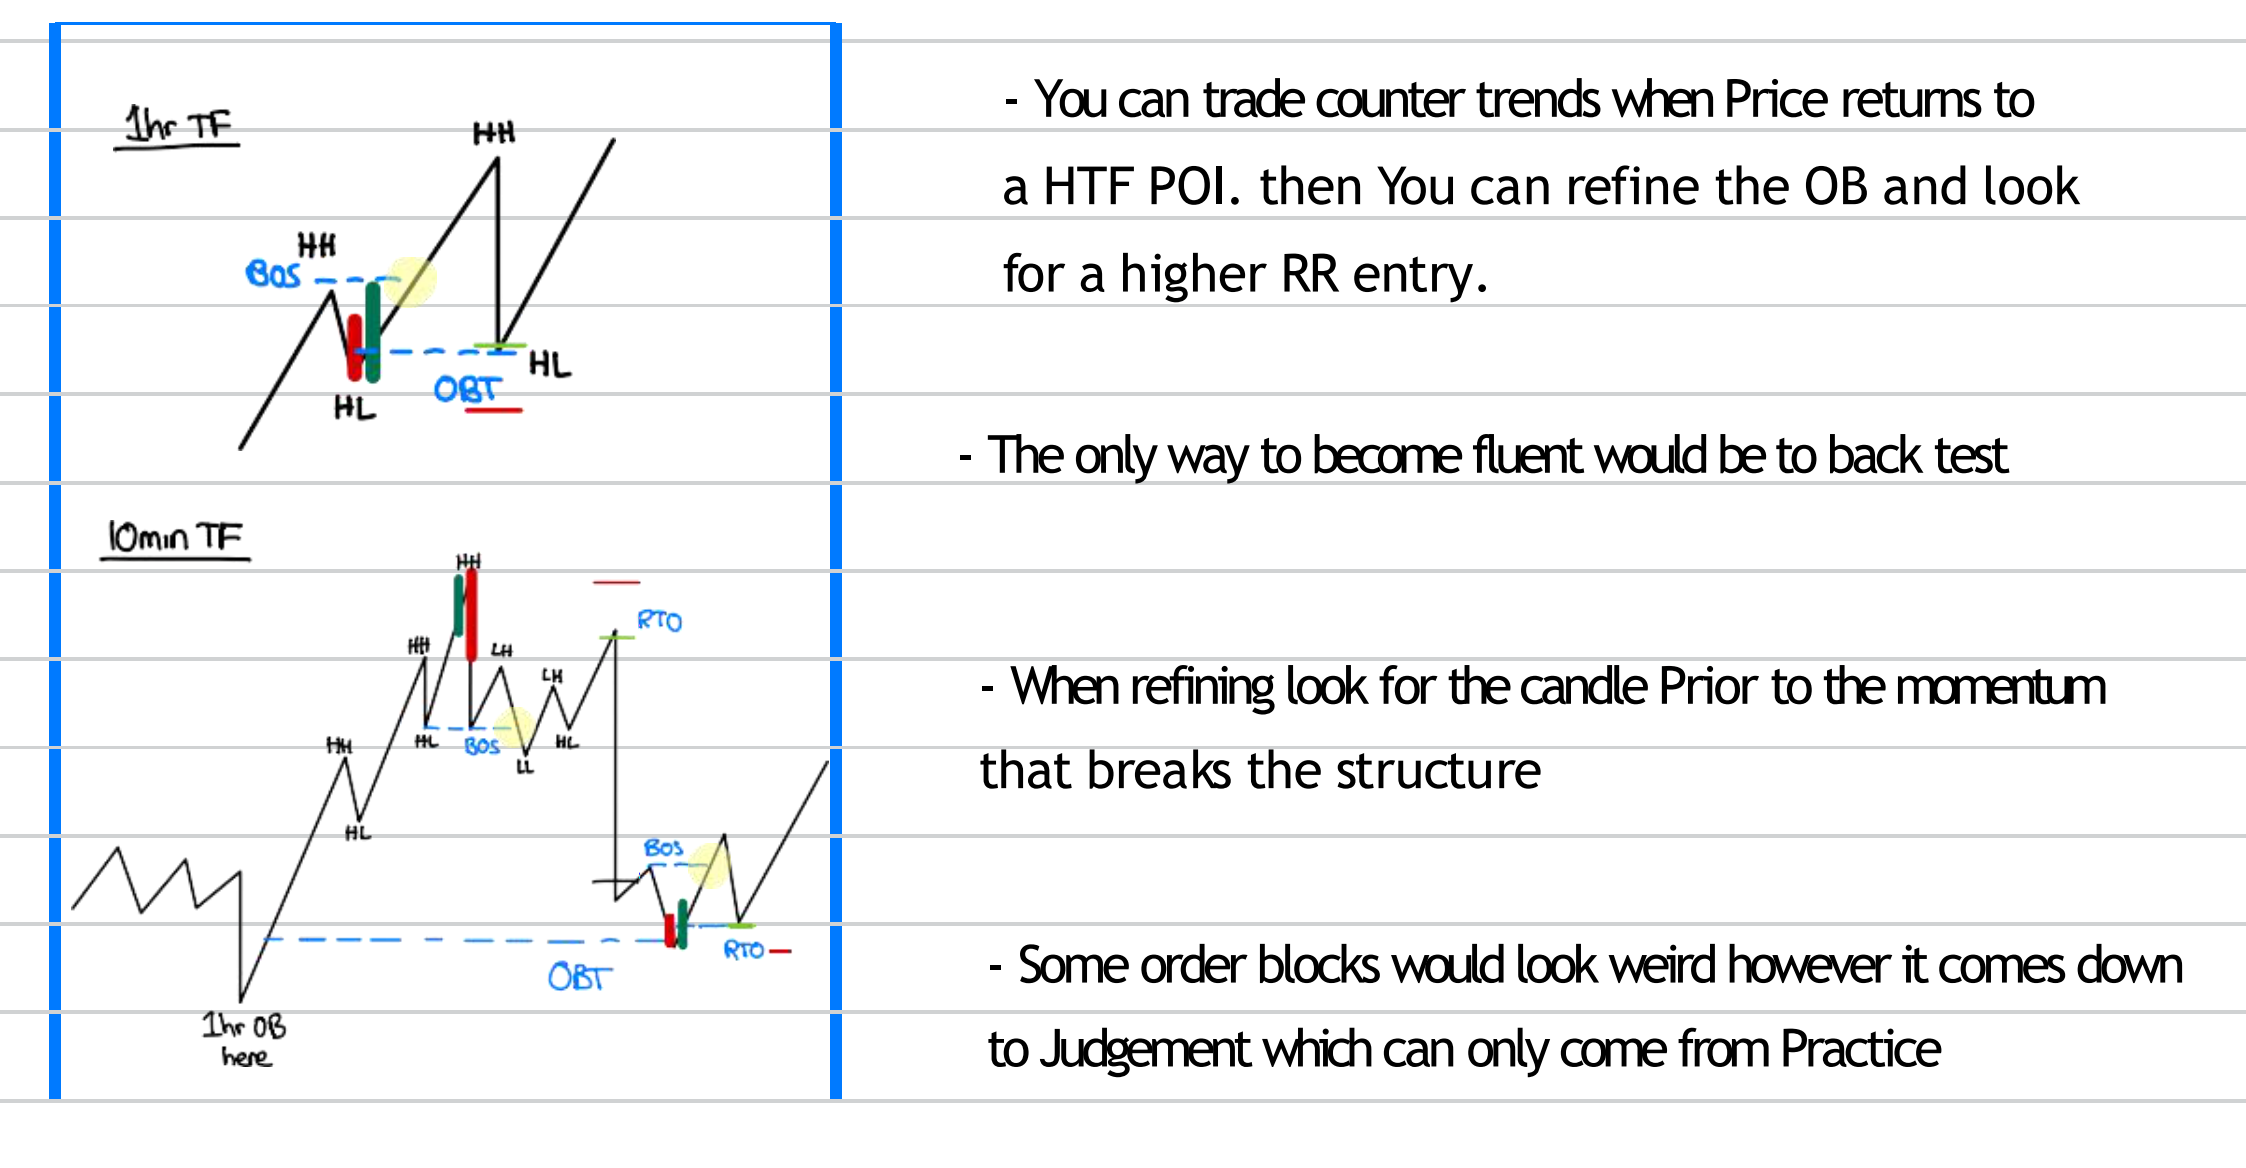 1hr TF
HH
HH
BOS
HL
OBT
HL
10min TF
HH
RTO
HH
LH
LH
HH
HL
BOS
HL
LL
HL
BOS
RTO
OBT
1hr OB
here
- You can trade counter trends when Price returns to
a HTF POI. then You can refine the OB and look
for a higher RR entry.
- The only way to become fluent would be to back test
- When refining look for the candle Prior to the momentum
that breaks the structure
- Some order blocks would look weird however it comes down
to Judgement which can only come from Practice